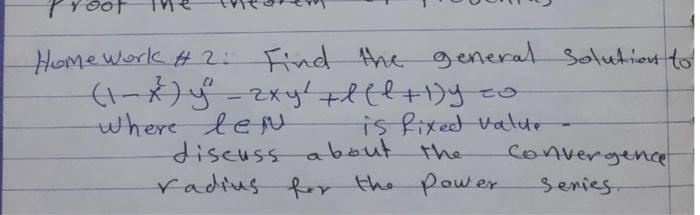 Proof the theorem of
Homework # 2: Find the general solution to
(1-x²)y" - 2xy' + l(l+1)y = 0
where l∈N is fixed value -
discuss about the convergence
radius for the power series.